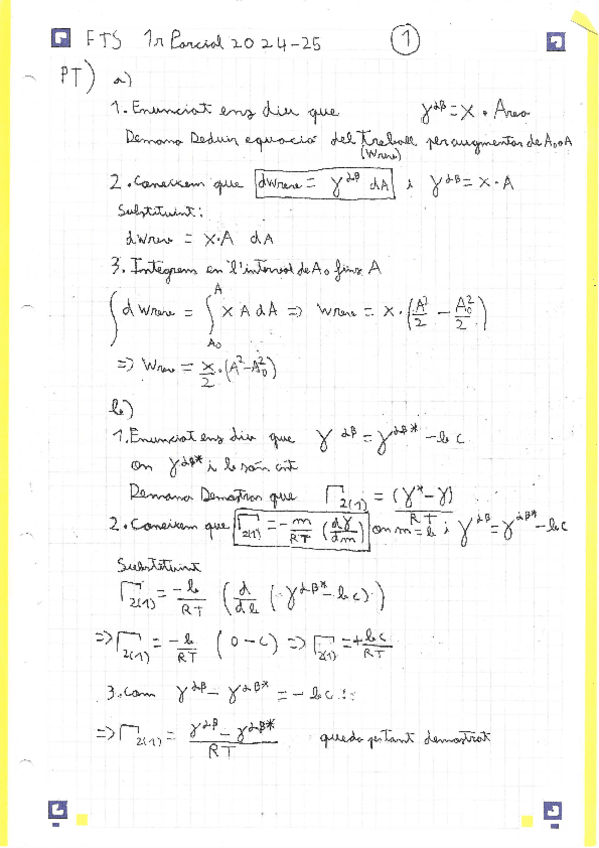 FTS 1r Parcial 2024-25 1
PT) a)
1. Enunciat ens diu que γ^αβ = x · Area
Demana Deduir equació del Treball per augmentar de A₀ a A
(Wrev)
2. Coneixem que dWrev = γ^αβ dA i γ^αβ = x · A
Substituint:
dWrev = x·A dA
3. Integrem en l'interval de A₀ fins A
∫ dWrev = ∫_{A₀}^{A} x A dA => Wrev = x · (A²/2 - A₀²/2)
=> Wrev = x/2 · (A² - A₀²)
b)
1. Enunciat ens diu que γ^αβ = γ^αβ* - b c
on γ^αβ* i b són cnt
Demana Demostrar que Γ₂₍₁₎ = (γ* - γ)/RT
2. Coneixem que Γ₂₍₁₎ = - m/RT (dγ/dm) on m = b i γ^αβ = γ^αβ* - b c
Substituint
Γ₂₍₁₎ = -b/RT (d/db (γ^αβ* - b c))
=> Γ₂₍₁₎ = -b/RT (0 - c) => Γ₂₍₁₎ = + bc/RT
3. Com γ^αβ - γ^αβ* = - b c
=> Γ₂₍₁₎ = (γ^αβ - γ^αβ*)/RT queda per tant demostrat